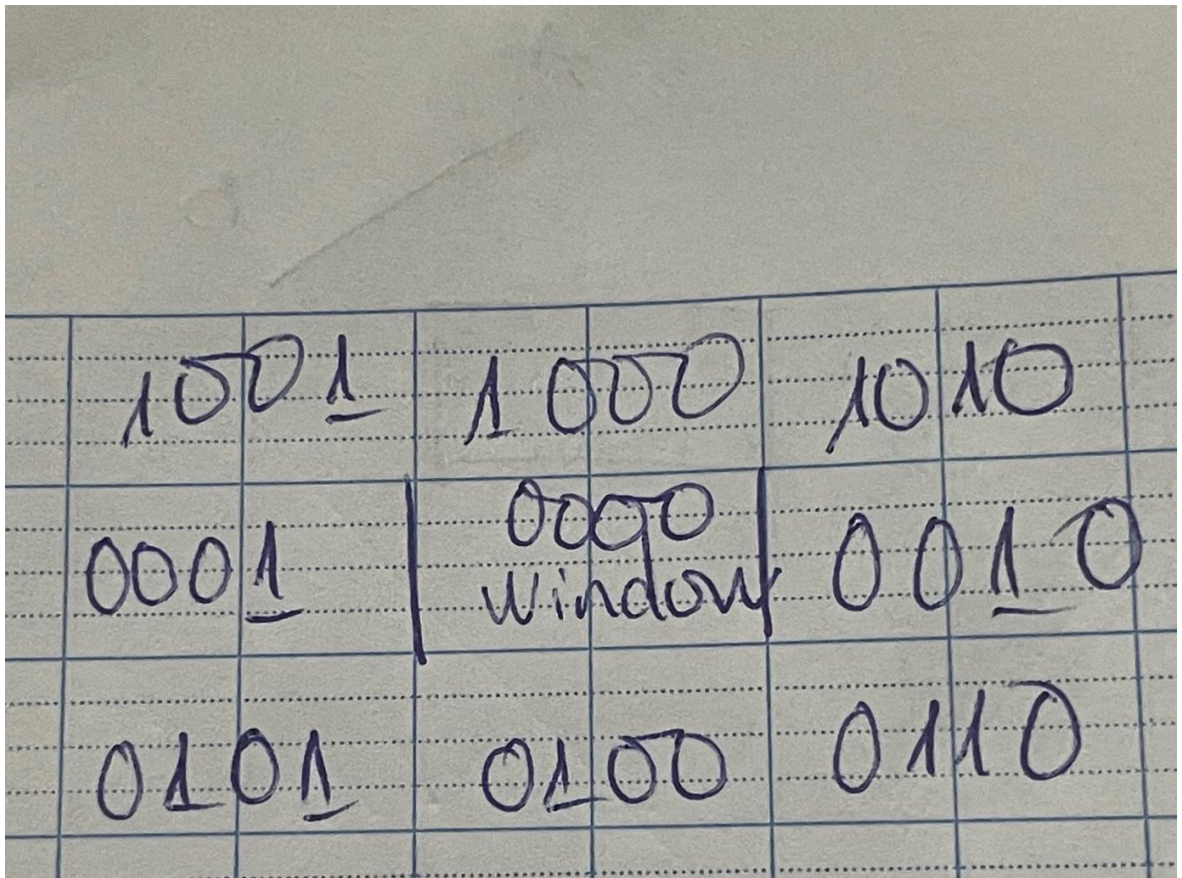 1001 1000 1010
0001 0000 0010
window
0101 0100 0110